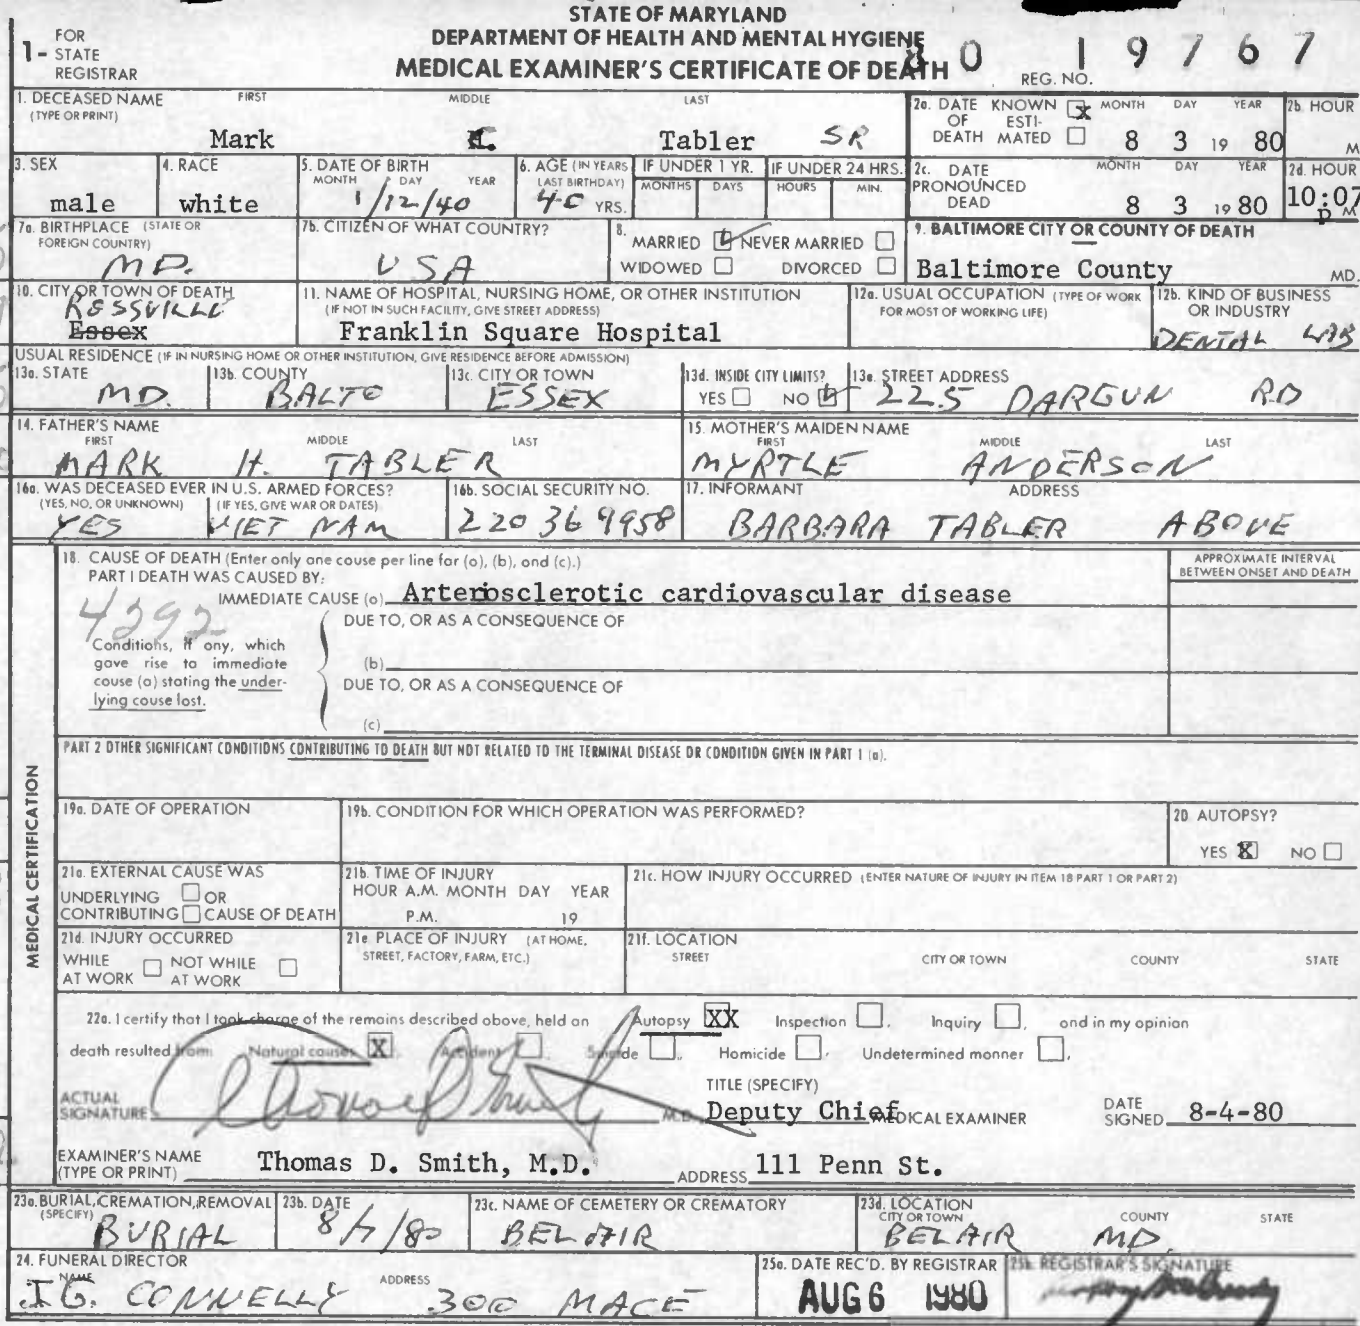 STATE OF MARYLAND
DEPARTMENT OF HEALTH AND MENTAL HYGIENE
MEDICAL EXAMINER'S CERTIFICATE OF DEATH
1- FOR STATE REGISTRAR
REG. NO. 80 19767
1. DECEASED NAME (TYPE OR PRINT) FIRST MIDDLE LAST
Mark Tabler SR
2a. DATE OF DEATH KNOWN X ESTIMATED MONTH DAY YEAR
8 3 19 80
2b. HOUR M
3. SEX
male
4. RACE
white
5. DATE OF BIRTH MONTH DAY YEAR
1/12/40
6. AGE (IN YEARS LAST BIRTHDAY)
40 YRS.
IF UNDER 1 YR. MONTHS DAYS
IF UNDER 24 HRS. HOURS MIN.
2c. DATE PRONOUNCED DEAD MONTH DAY YEAR
8 3 19 80
2d. HOUR
10:07 P M
7a. BIRTHPLACE (STATE OR FOREIGN COUNTRY)
MD.
7b. CITIZEN OF WHAT COUNTRY?
USA
8. MARRIED NEVER MARRIED
WIDOWED DIVORCED
9. BALTIMORE CITY OR COUNTY OF DEATH
Baltimore County MD.
10. CITY OR TOWN OF DEATH
ROSSVILLE
Essex
11. NAME OF HOSPITAL, NURSING HOME, OR OTHER INSTITUTION
(IF NOT IN SUCH FACILITY, GIVE STREET ADDRESS)
Franklin Square Hospital
12a. USUAL OCCUPATION (TYPE OF WORK FOR MOST OF WORKING LIFE)
12b. KIND OF BUSINESS OR INDUSTRY
DENTAL LAB
USUAL RESIDENCE (IF IN NURSING HOME OR OTHER INSTITUTION, GIVE RESIDENCE BEFORE ADMISSION)
13a. STATE
MD.
13b. COUNTY
BALTO
13c. CITY OR TOWN
ESSEX
13d. INSIDE CITY LIMITS?
YES NO
13e. STREET ADDRESS
225 DARGUN RD
14. FATHER'S NAME FIRST MIDDLE LAST
MARK H. TABLER
15. MOTHER'S MAIDEN NAME FIRST MIDDLE LAST
MYRTLE ANDERSON
16a. WAS DECEASED EVER IN U.S. ARMED FORCES?
(YES, NO, OR UNKNOWN) (IF YES, GIVE WAR OR DATES)
YES VIET NAM
16b. SOCIAL SECURITY NO.
220 36 9958
17. INFORMANT ADDRESS
BARBARA TABLER ABOVE
18. CAUSE OF DEATH (Enter only one couse per line for (a), (b), and (c).)
APPROXIMATE INTERVAL BETWEEN ONSET AND DEATH
PART I DEATH WAS CAUSED BY:
IMMEDIATE CAUSE (a) Arteriosclerotic cardiovascular disease
4292
DUE TO, OR AS A CONSEQUENCE OF
Conditions, if any, which
gave rise to immediate
cause (a) stating the under-
lying cause last.
(b)
DUE TO, OR AS A CONSEQUENCE OF
(c)
PART 2 OTHER SIGNIFICANT CONDITIONS CONTRIBUTING TO DEATH BUT NOT RELATED TO THE TERMINAL DISEASE OR CONDITION GIVEN IN PART 1 (a).
MEDICAL CERTIFICATION
19a. DATE OF OPERATION
19b. CONDITION FOR WHICH OPERATION WAS PERFORMED?
20 AUTOPSY?
YES X NO
21a. EXTERNAL CAUSE WAS
UNDERLYING OR
CONTRIBUTING CAUSE OF DEATH
21b. TIME OF INJURY
HOUR A.M. MONTH DAY YEAR
P.M. 19
21c. HOW INJURY OCCURRED (ENTER NATURE OF INJURY IN ITEM 18 PART 1 OR PART 2)
21d. INJURY OCCURRED
WHILE AT WORK NOT WHILE AT WORK
21e PLACE OF INJURY (AT HOME, STREET, FACTORY, FARM, ETC.)
21f. LOCATION
STREET CITY OR TOWN COUNTY STATE
22a. I certify that I took charge of the remains described above, held an Autopsy XX Inspection , Inquiry , and in my opinion
death resulted from: Natural causes X , Accident , Suicide , Homicide , Undetermined manner .
ACTUAL SIGNATURE Thomas D Smith M.D.
TITLE (SPECIFY)
Deputy Chief MEDICAL EXAMINER
DATE SIGNED 8-4-80
EXAMINER'S NAME (TYPE OR PRINT) Thomas D. Smith, M.D.
ADDRESS 111 Penn St.
23a. BURIAL, CREMATION, REMOVAL (SPECIFY)
BURIAL
23b. DATE
8/7/80
23c. NAME OF CEMETERY OR CREMATORY
BEL AIR
23d. LOCATION CITY OR TOWN COUNTY STATE
BEL AIR MD.
24. FUNERAL DIRECTOR
NAME ADDRESS
J.G. CONNELLY 300 MACE
25a. DATE REC'D. BY REGISTRAR
AUG 6 1980
25b. REGISTRAR'S SIGNATURE